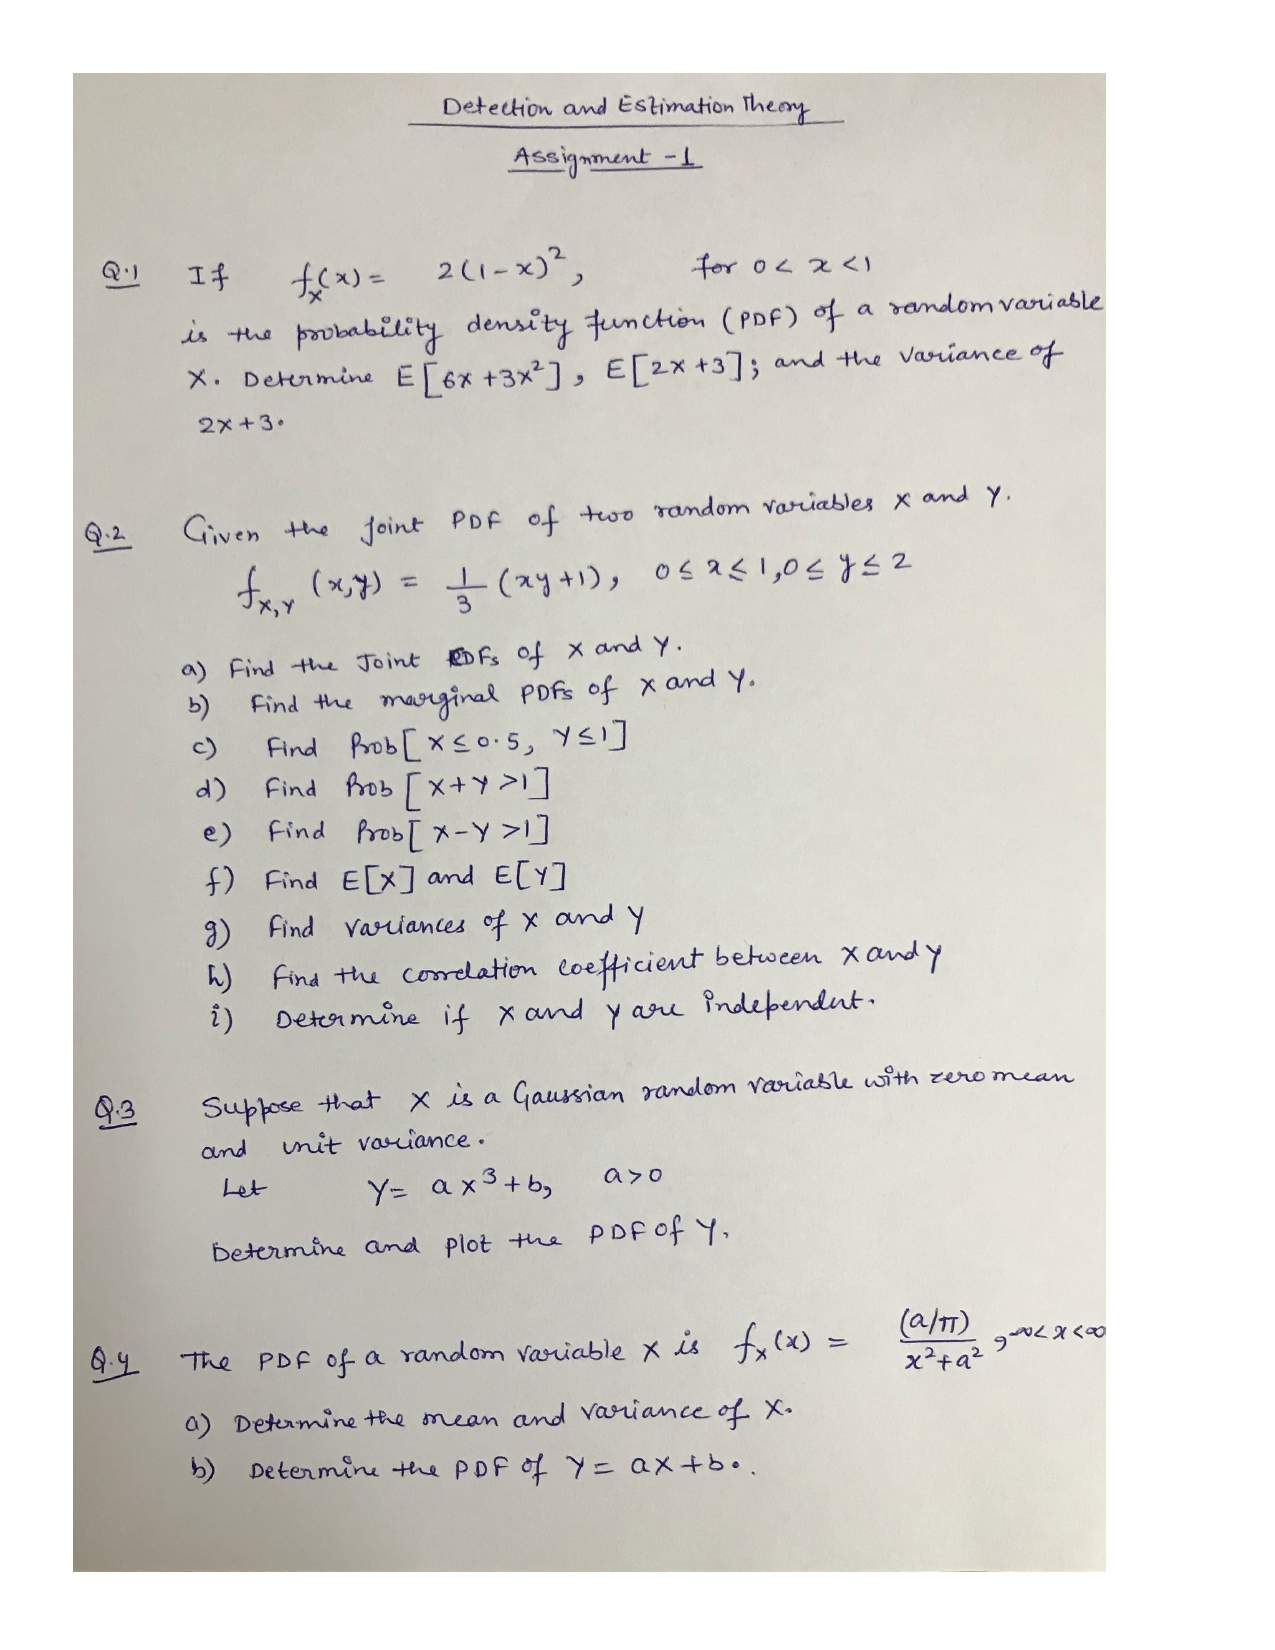 Detection and Estimation Theory
Assignment - 1
Q.1 If f_X(x) = 2(1-x)², for 0 < x < 1
is the probability density function (PDF) of a random variable
X. Determine E[6X+3X²], E[2X+3]; and the variance of
2X+3.
Q.2 Given the joint PDF of two random variables X and Y.
f_X,Y (x,y) = 1/3 (xy+1), 0 ≤ x ≤ 1, 0 ≤ y ≤ 2
a) Find the Joint CDFs of X and Y.
b) Find the marginal PDFs of X and Y.
c) Find Prob[X ≤ 0.5, Y ≤ 1]
d) Find Prob[X+Y > 1]
e) Find Prob[X-Y > 1]
f) Find E[X] and E[Y]
g) Find variances of X and Y
h) Find the correlation coefficient between X and Y
i) Determine if X and Y are independent.
Q.3 Suppose that X is a Gaussian random variable with zero mean
and unit variance.
Let Y = aX³+b, a>0
Determine and plot the PDF of Y.
Q.4 The PDF of a random variable X is f_X(x) = (a/π) / (x²+a²), -∞ < x < ∞
a) Determine the mean and variance of X.
b) Determine the PDF of Y = aX+b.